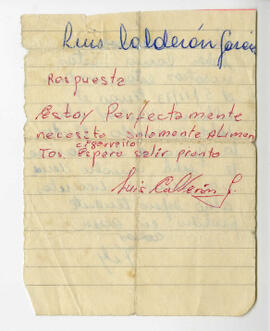 Luis Calderón García
Respuesta
Estoy Perfectamente
necesito solamente Alimen
cigarrillo
Tos. Espero salir pronto
Luis Calderón G.